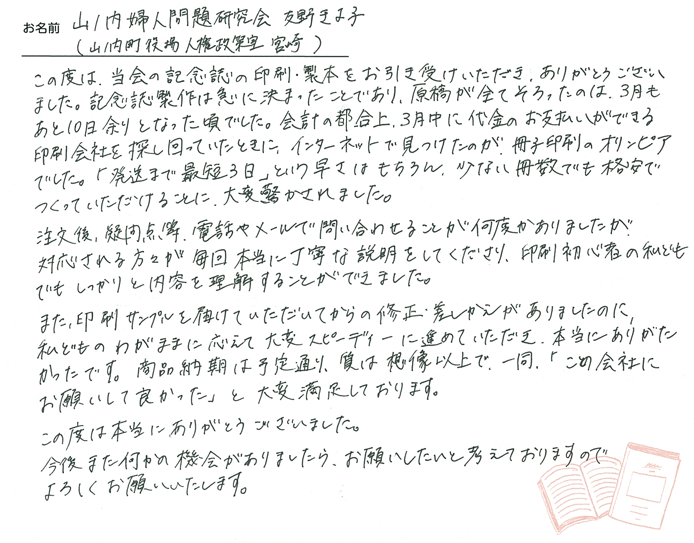 お名前 山ノ内婦人問題研究会 友野きよ子
(山ノ内町役場人権政策室 宮崎)
この度は、当会の記念誌の印刷・製本をお引き受けいただき、ありがとうござい
ました。記念誌製作は急に決まったことであり、原稿が全てそろったのは、3月も
あと10日余りとなった頃でした。会計の都合上、3月中に代金のお支払いができる
印刷会社を探し回っていたときに、インターネットで見つけたのが、冊子印刷のオリンピア
でした。「発送まで最短3日」という早さはもちろん、少ない冊数でも格安で
つくっていただけることに、大変驚かされました。
注文後、疑問点等、電話やメールで問い合わせることが何度かありましたが、
対応される方々が毎回本当に丁寧な説明をしてくださり、印刷初心者の私ども
でもしっかりと内容を理解することができました。
また、印刷サンプルを届けていただいてからの修正・差しかえがありましたのに、
私どものわがままに応えて大変スピーディーに進めていただき、本当にありがた
かったです。商品納期は予定通り、質は想像以上で、一同、「この会社に
お願いして良かった」と大変満足しております。
この度は本当にありがとうございました。
今後また何かの機会がありましたら、お願いしたいと考えておりますので
よろしくお願いいたします。